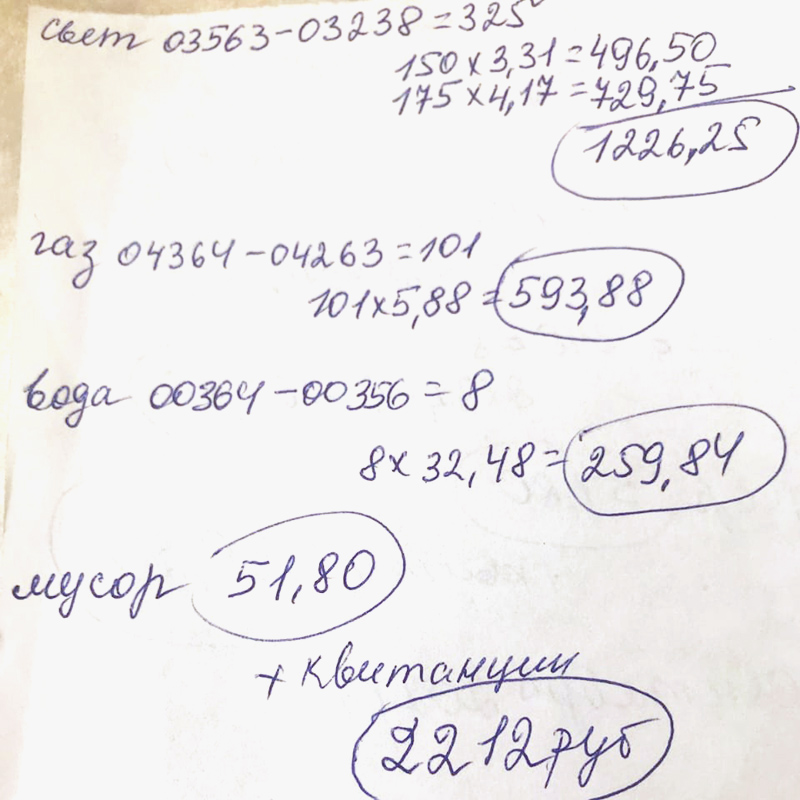 свет 03563-03238=325
150×3,31=496,50
175×4,17=729,75
1226,25
газ 04364-04263=101
101×5,88=593,88
вода 00364-00356=8
8×32,48=259,84
мусор 51,80
+ квитанции
2212руб